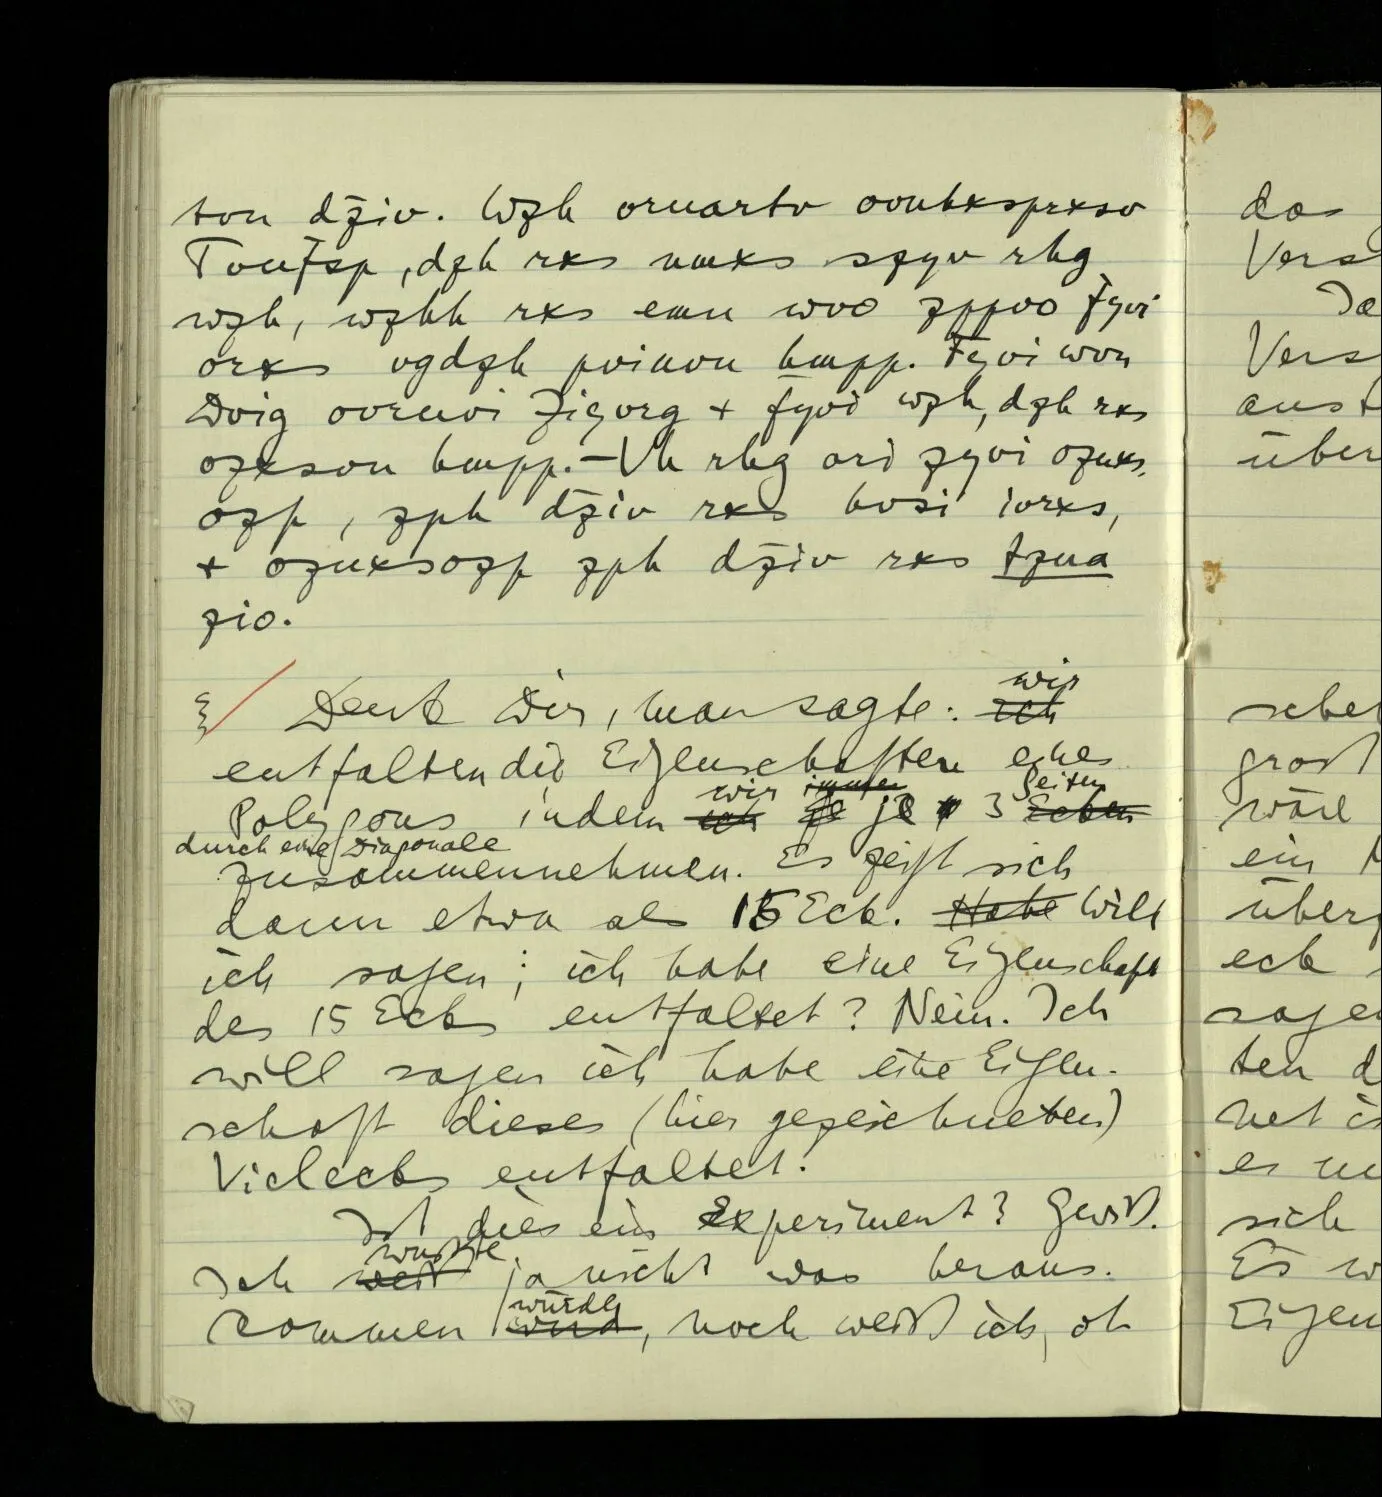 tvm dz̈iv. Wzh vrmartv nvmhxsorxsv
Tvuf̈so, dzh rxs mlxs szyv rhg
wzh, wzhh rxs elm wvn zoovn f̈yvi
nrxs vgdzh ovimvm hloo. F̈yvi wvm
Dvig vrmvi Ziyvrg + f̈yvi wzh, dzh rxs
nzxsvm hloo. – Vh rhg nri zyvi nzmxs-
nzo, zoh dz̈iv rxs hvsi ivrxs,
+ nzmxsnzo zoh dz̈iv rxs tzma
zin.
Denk Dir, man sagte: ich wir
entfalten die Eigenschaften eines
Polygons indem ich wir immer je je 3 Ecken Seiten
durch eine Diagonale
zusammennehmen. Es zeigt sich
dann etwa als 15 Eck. Habe Will
ich sagen; ich habe eine Eigenschaft
des 15 Ecks entfaltet? Nein. Ich
will sagen ich habe eine Eigen-
schaft dieses (hier gezeichneten)
Vielecks entfaltet.
Ist dies ein Experiment? Gewiß.
Ich weiß wußte ja nicht was heraus-
kommen wird würde, noch weiß ich, ob
das
Vers
Ja
Vers
anst
über
sche
groß
wäre
ein
über
eck
sagen
ten d
net is
er
sich
Es w
Eigen